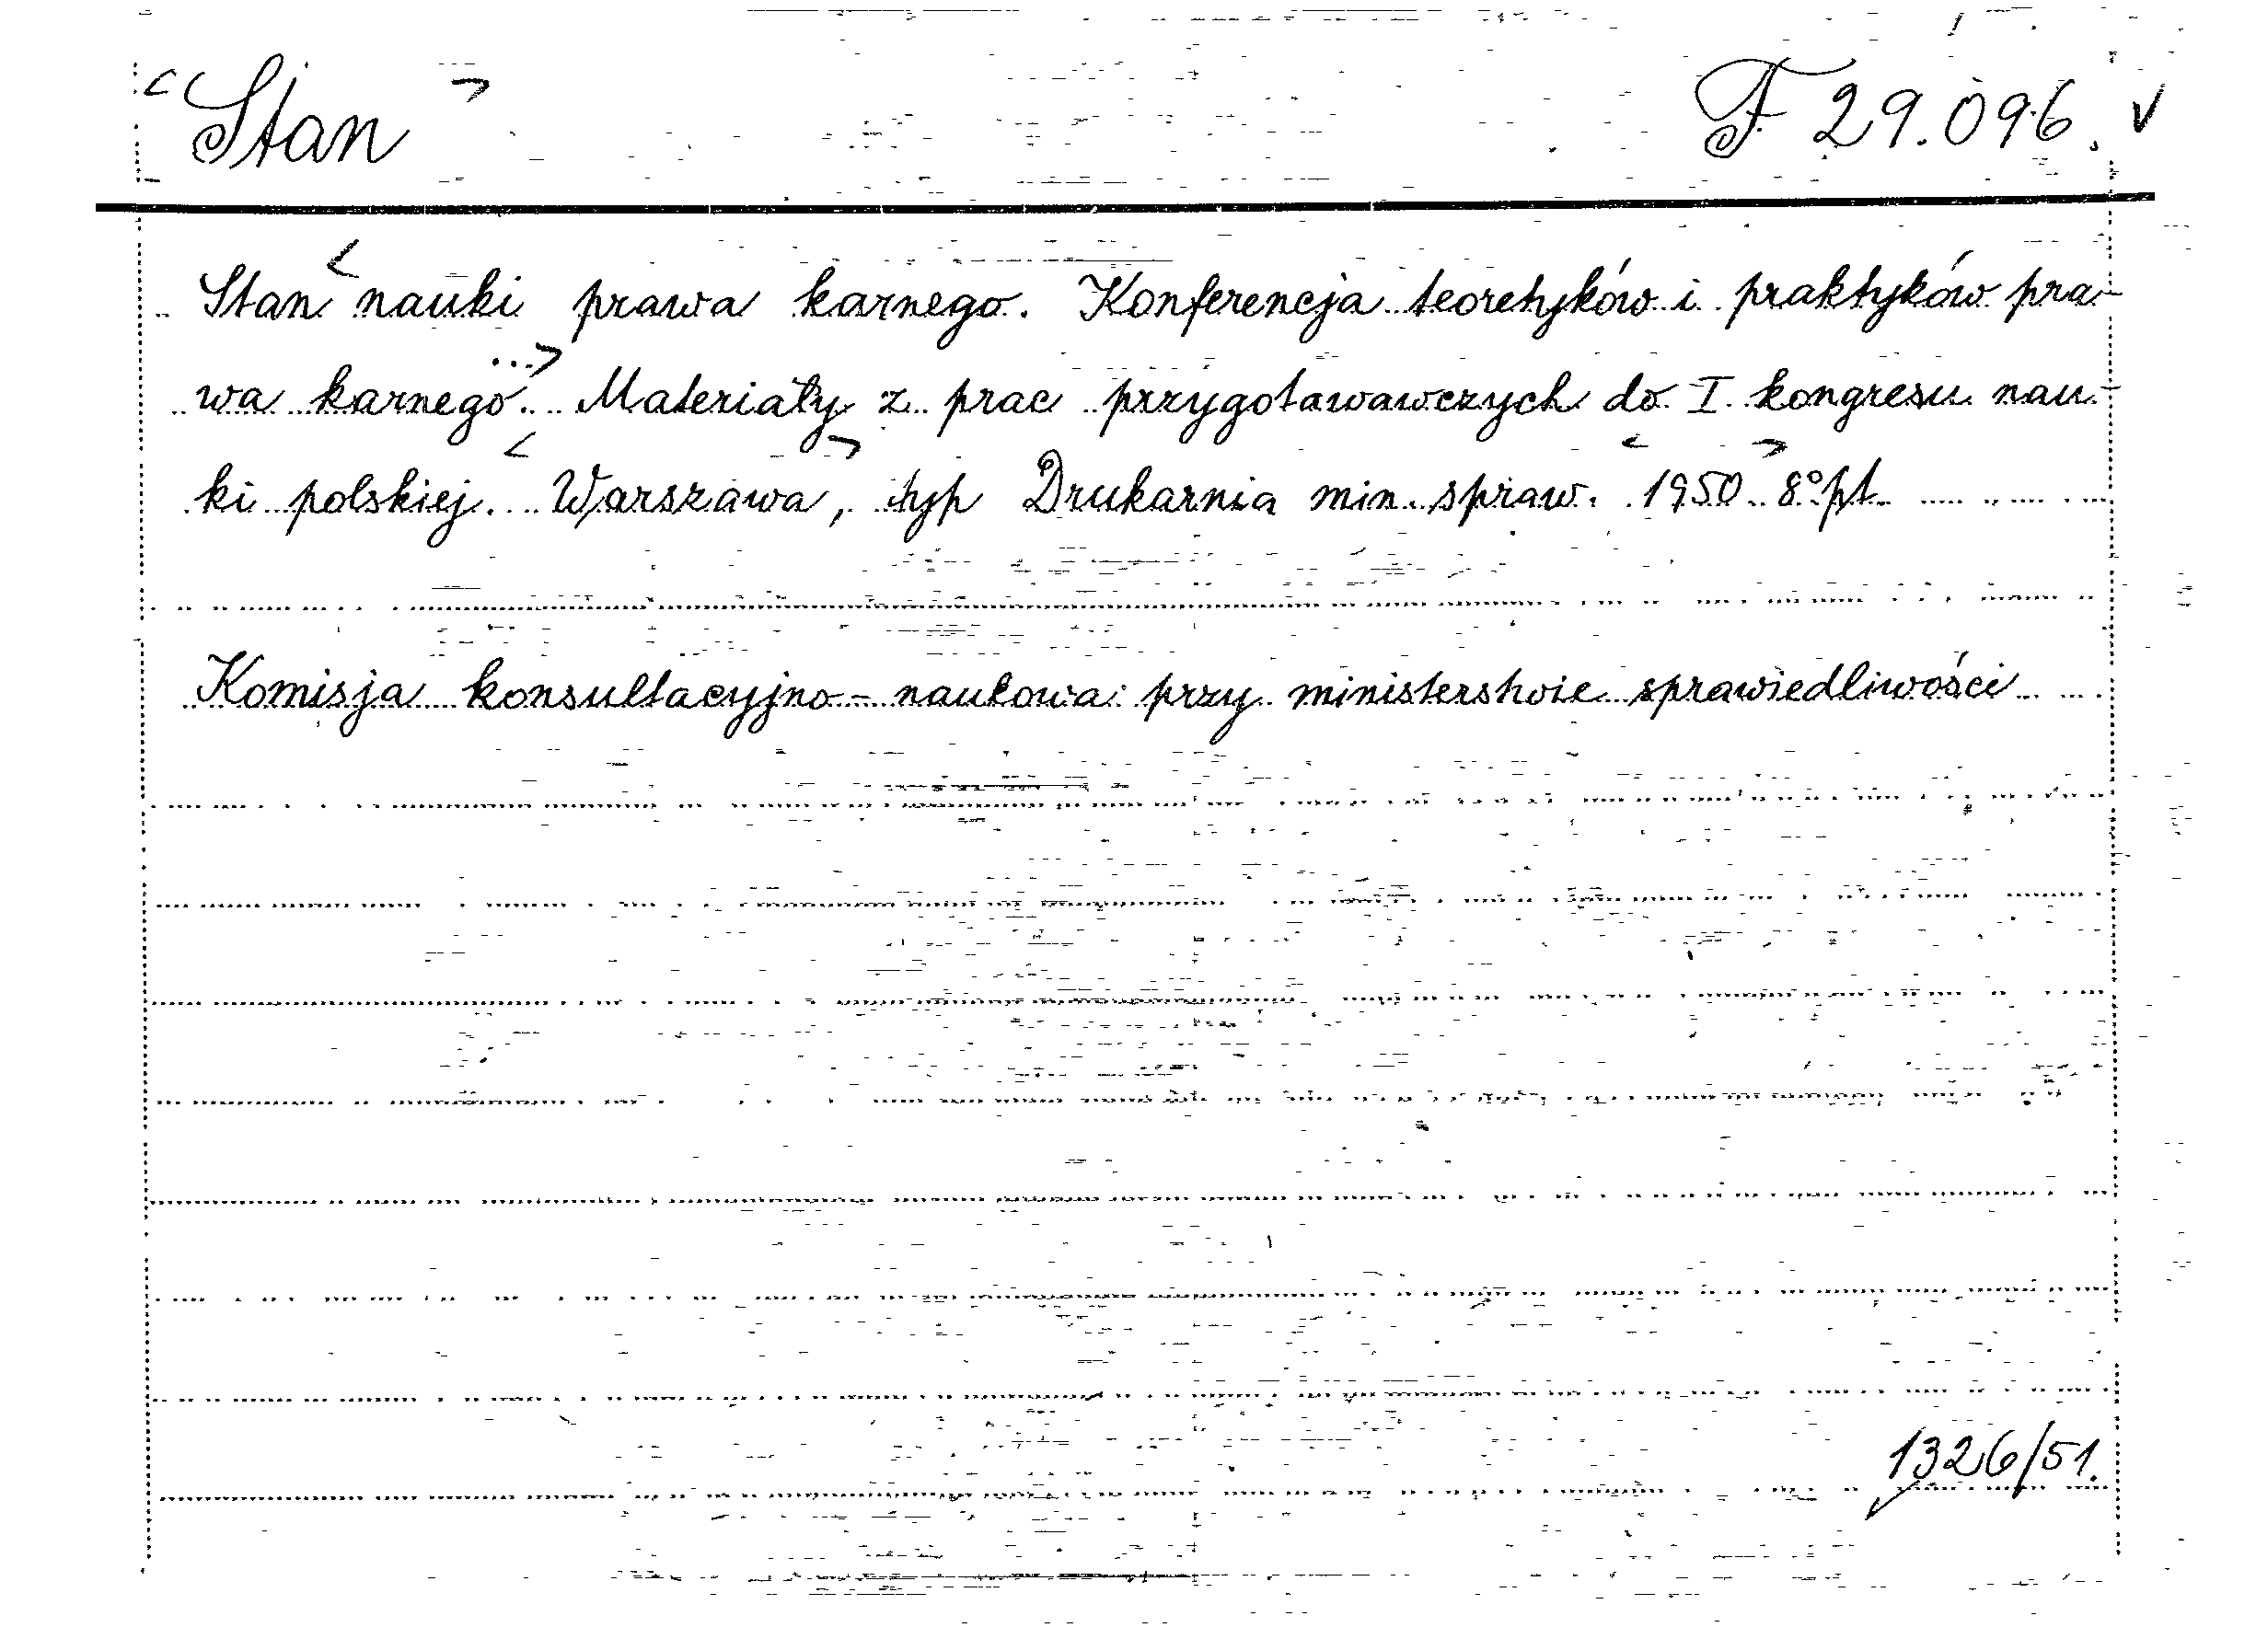 Stan F 29.096. v
Stan nauki prawa karnego. Konferencja teoretyków i praktyków pra-
wa karnego. Materiały z prac przygotawawczych do I kongresu nau-
ki polskiej. Warszawa, typ Drukarnia min. spraw. 1950 8° pt
Komisja konsultacyjno-naukowa przy ministerstwie sprawiedliwości
1326/51.